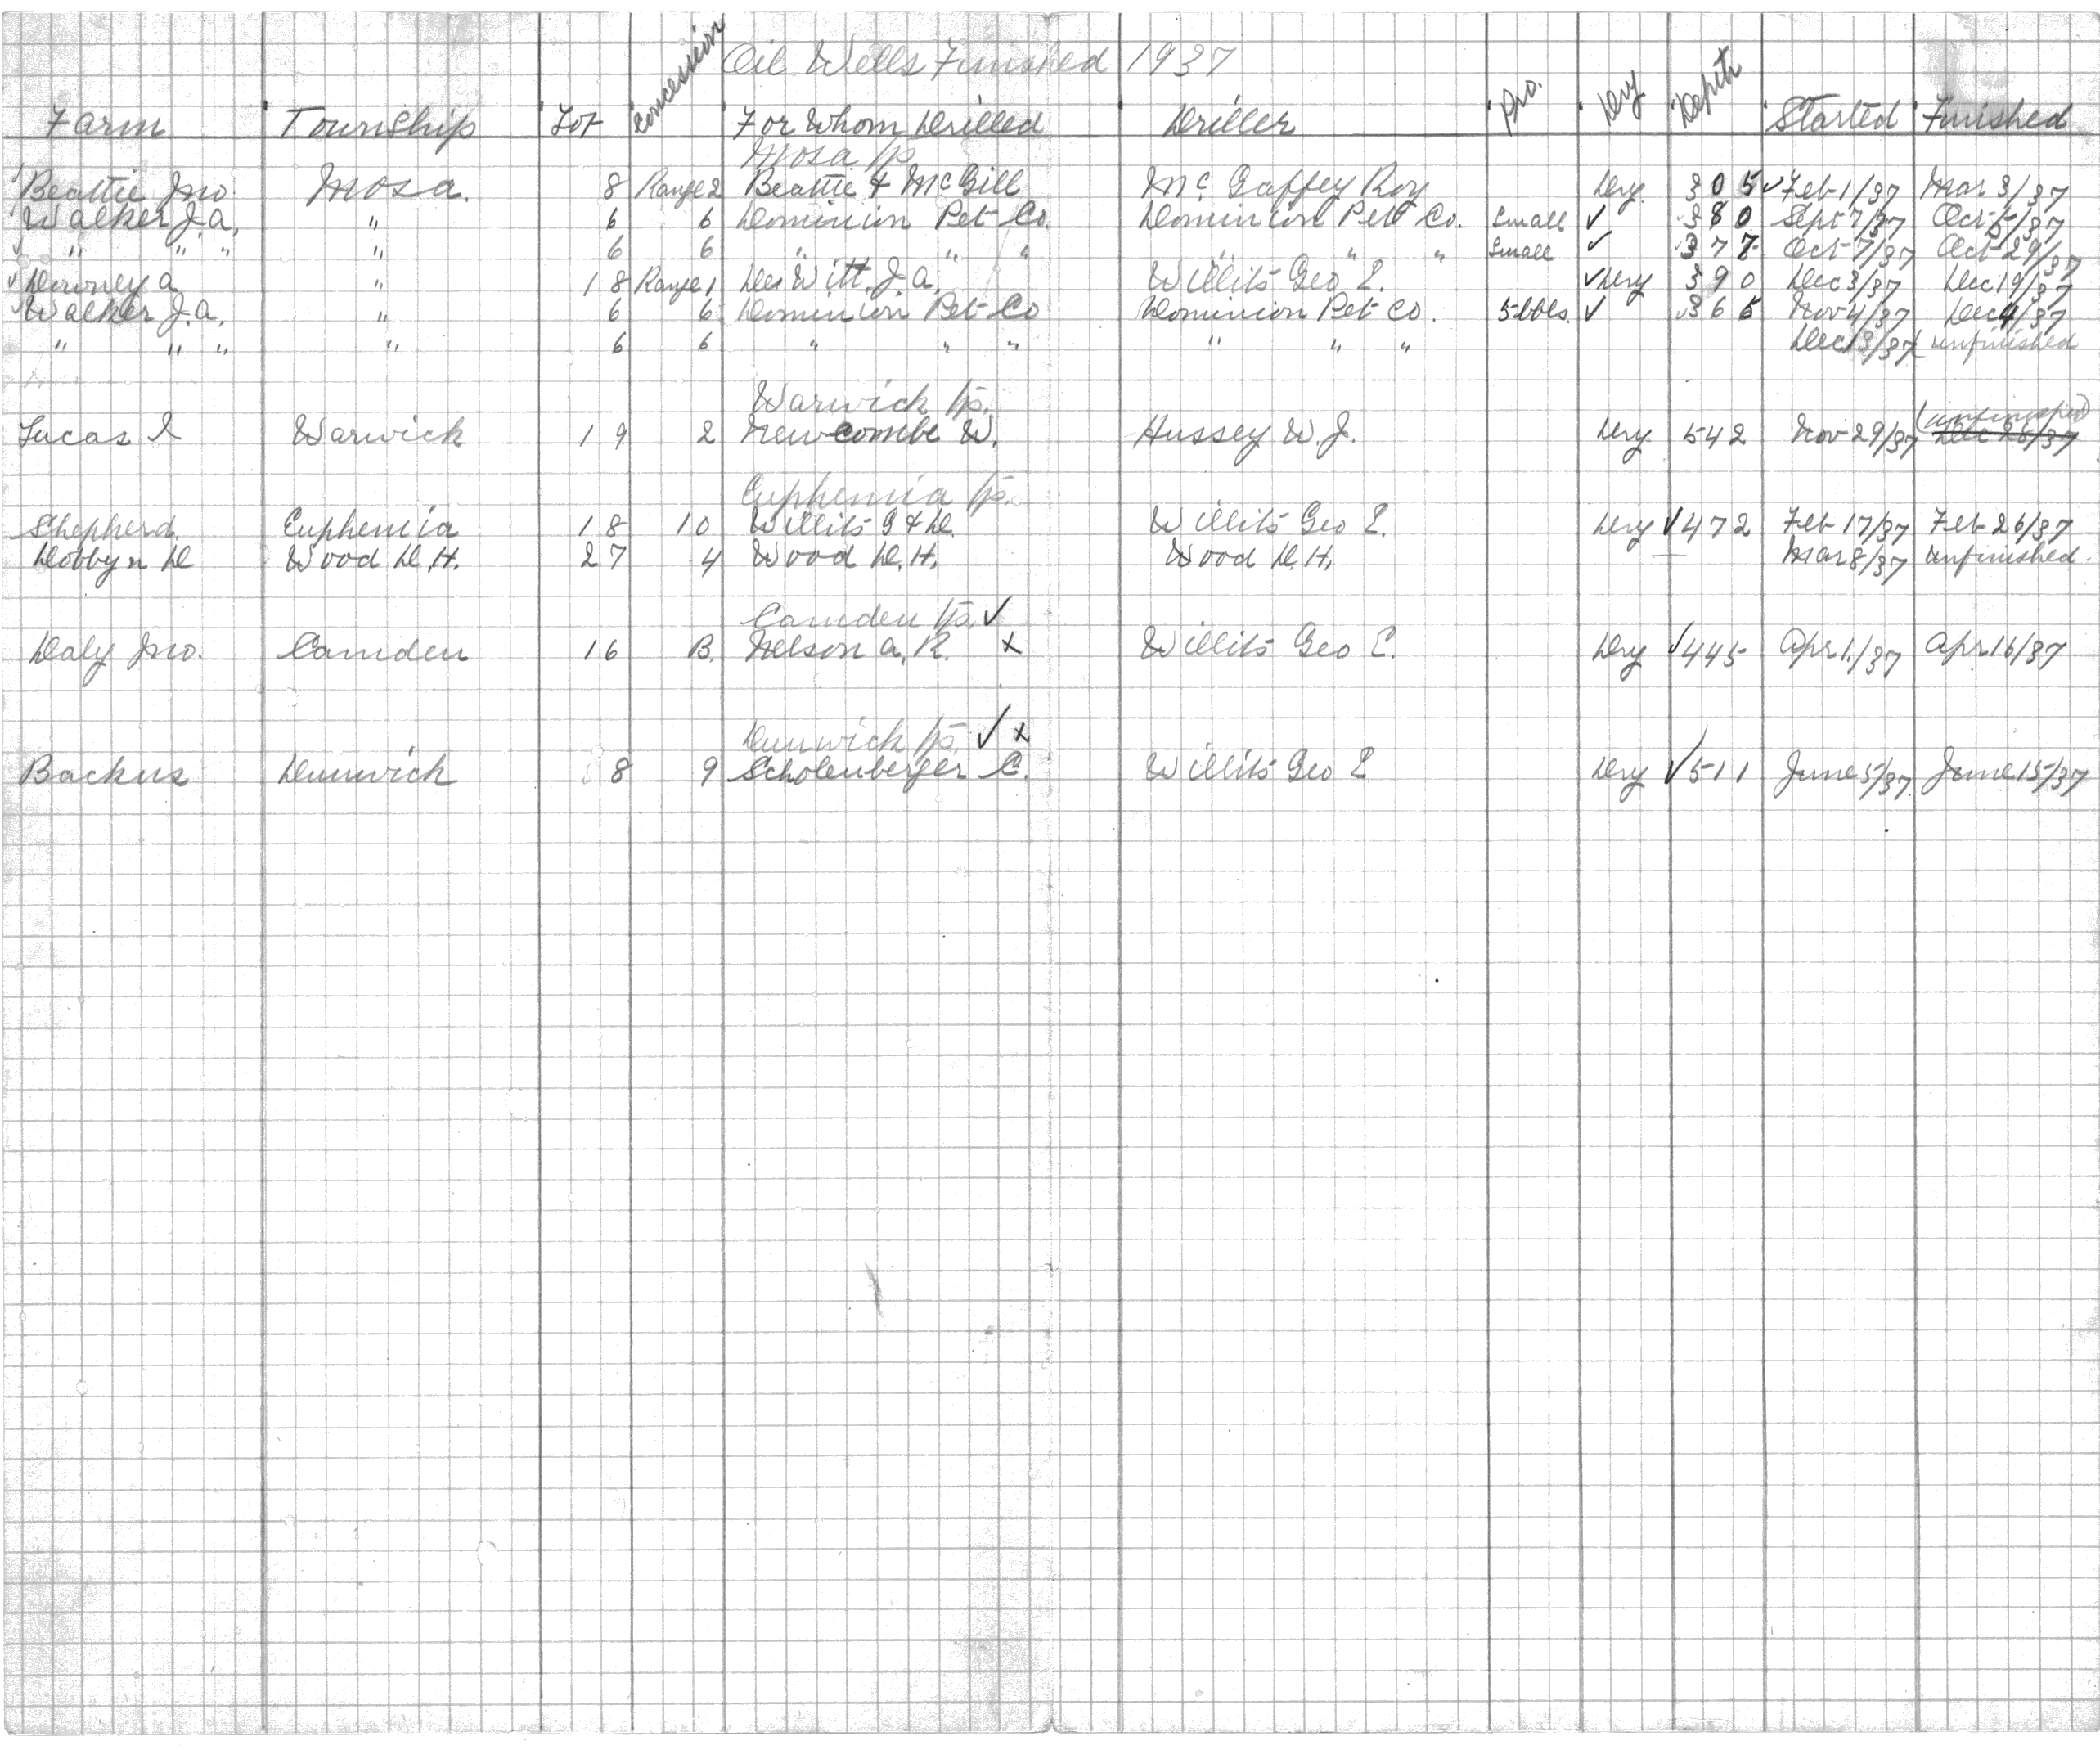 Oil Wells Finished 1937
Farm Township Lot Concession For Whom Drilled Driller Pro. Dry Depth Started Finished
Mosa Tp.
✓ Beattie Jno. Mosa. 8 Range 2 Beattie & McGill McGaffey Roy Dry 305 ✓ Feb 1/37 Mar 3/37
✓ Walker J.A. " 6 6 Dominion Pet Co. Dominion Pet Co. Small ✓ 380 Sept 7/37 Oct 5/37
✓ " " " " 6 6 " " " " " " Small ✓ 377 Oct 7/37 Oct 29/37
✓ Downey A " 18 Range 1 De Witt. J.A. Willits Geo E. ✓ Dry 390 Dec 3/37 Dec 19/37
✓ Walker J.A. " 6 6 Dominion Pet Co Dominion Pet Co. 5 bbls. ✓ 365 Nov 4/37 Dec 4/37
" " " " 6 6 " " " " " " Dec 13/37 unfinished
Warwick Tp.
Lucas I Warwick 19 2 Newcombe W. Hussey W.J. Dry 542 Nov 29/37 Dec 26/37 (unfinished)
Euphemia Tp.
Shepherd. Euphemia 18 10 Willits G & D. Willits Geo E. Dry ✓ 472 Feb 17/37 Feb 26/37
Dobbyn D Wood D.H. 27 4 Wood D.H. Wood D.H. Mar 8/37 unfinished.
Camden Tp. ✓
Daly Jno. Camden 16 B. Nelson A.R. x Willits Geo E. Dry ✓ 445 Apr 1/37 Apr 16/37
Dunwich Tp. ✓ x
Backus Dunwich 8 9 Scholenberger C. Willits Geo E Dry ✓ 511 June 5/37 June 15/37